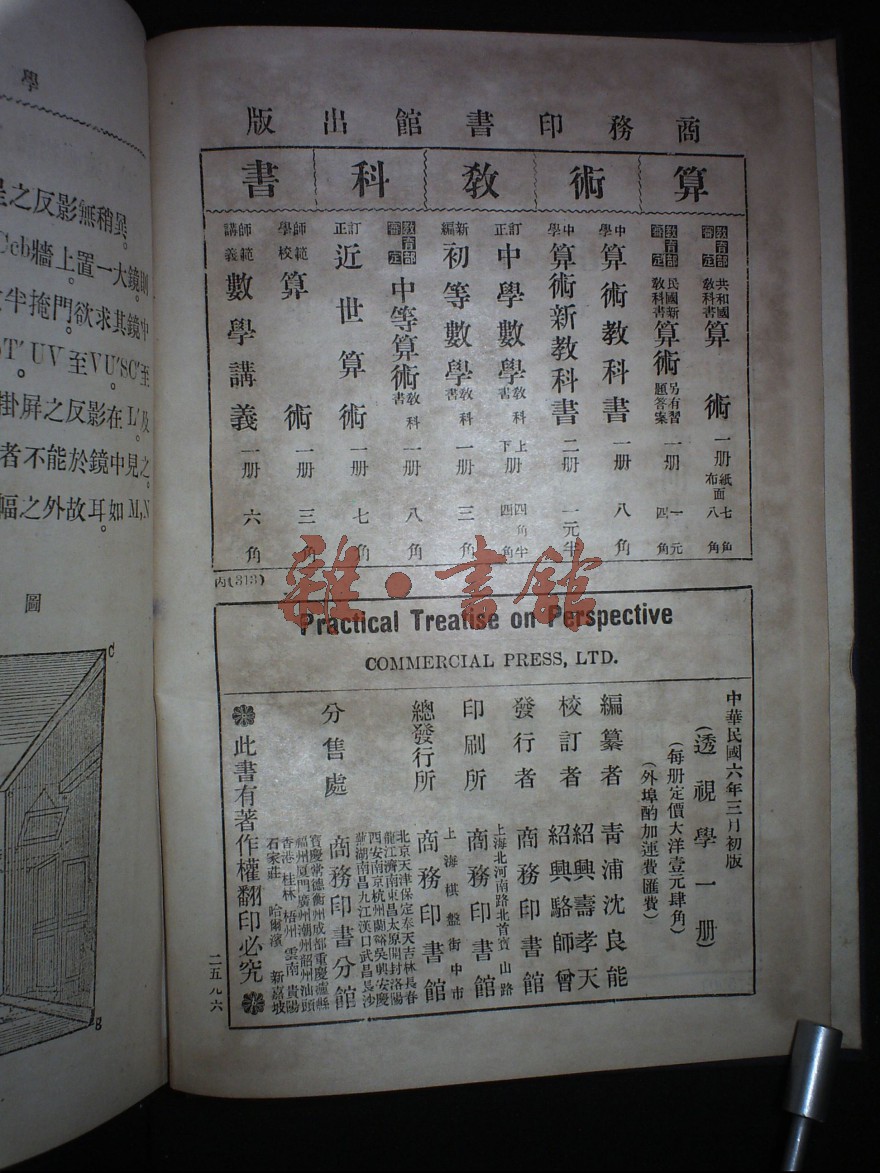 商務印書館出版
算術教科書
教育部審定 共和國教科書 算術 一册 紙面七角 布面八角
教育部審定 民國新教科書 算術 另有習題答案 一册 一元四角
中學 算術教科書 一册 八角
中學 算術新教科書 二册 一元半
訂正 中學數學教科書 上册四角半 下册四角
新編 初等數學教科書 一册 三角
教育部審定 中等算術教科書 一册 八角
訂正 近世算術 一册 七角
師範學校 算術 一册 三角
師範講義 數學講義 一册 六角
内(313)
Practical Treatise on Perspective
COMMERCIAL PRESS, LTD.
中華民國六年三月初版
(透視學一册)
(每册定價大洋壹元肆角)
(外埠酌加運費匯費)
編纂者 青浦沈良能
校訂者 紹興壽孝天
紹興駱師曾
發行者 商務印書館
上海北河南路北首寶山路
印刷所 商務印書館
上海棋盤街中市
總發行所 商務印書館
北京天津保定奉天吉林長春
龍江濟南東昌太原開封洛陽
西安南京杭州蘭谿吳興安慶
蕪湖南昌九江漢口武昌長沙
分售處 商務印書分館
寶慶常德衡州成都重慶瀘縣
福州厦門廣州潮州韶州汕頭
香港桂林梧州雲南貴陽
石家莊 哈爾濱 新嘉坡
此書有著作權翻印必究
二五九六
學
之反影無稍異。
ccb牆上。置一大鏡。則
半掩門。欲求其鏡中
T′UV至VU′SC″至
掛屏之反影在L′。及
者不能於鏡中見之。
幅之外故耳。如M,N
圖
C
B
雜·書館